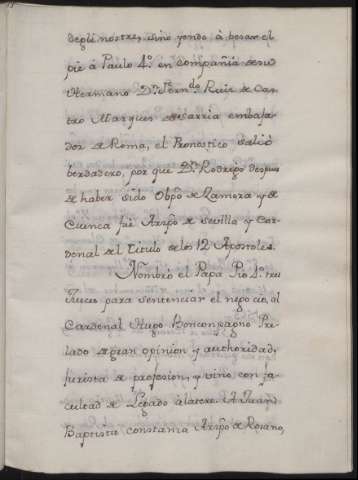 degli nostres, sino yendo à besar el
pie à Paulo 4.º en compañia de su
Hermano D.n Fern.do Ruiz de Cas-
tro Marques de Sarria embaja-
dor de Roma, el Pronostico salió
berdadero, por que D.n Rodrigo despues
de haber sido Obpo de Zamora y de
Cuenca fue Arzpo de Sevilla y Car-
denal del Titulo de los 12 Apostoles.
Nombró el Papa Pio 4.º tres
Jueces para sentenciar el negocio, al
Cardenal Hugo Boncompagno Pre-
lado de gran opinion y authoridad,
jurista de profesion, y vino con fa-
cultad de Legado àlatere. A Juan
Baptista constania Arzpo de Rosano,